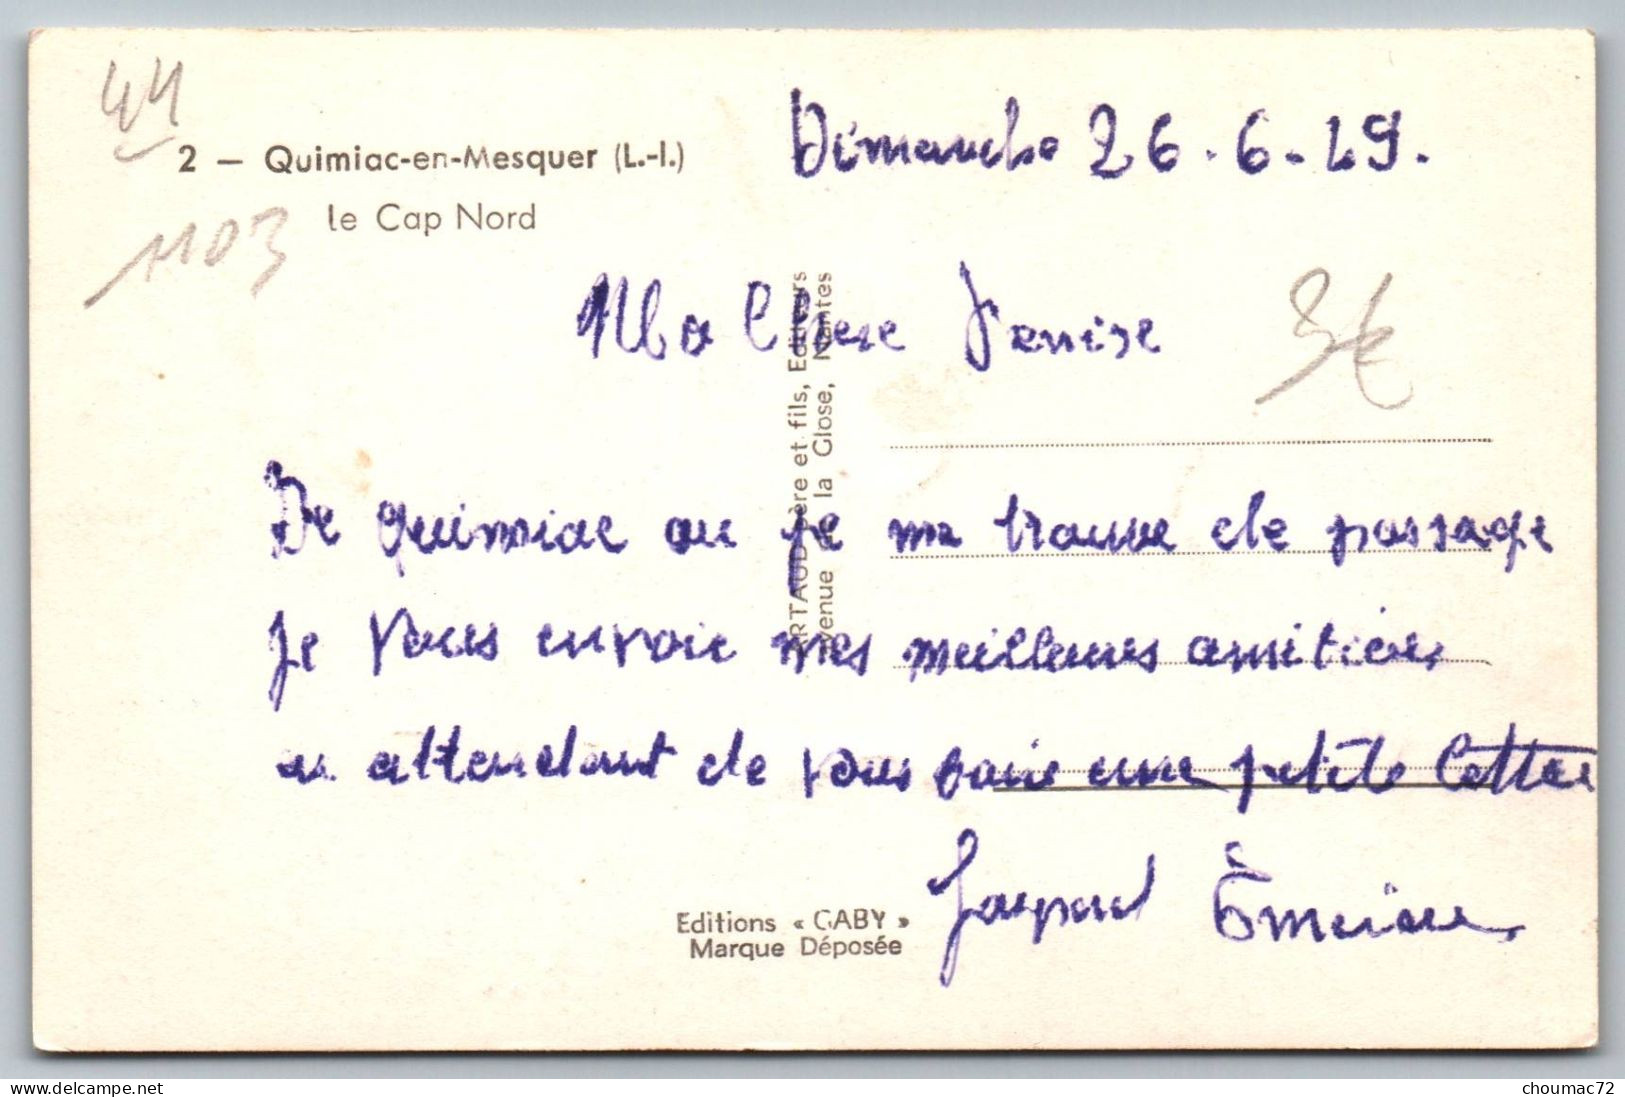 44
2 — Quimiac-en-Mesquer (L.-I.)
Le Cap Nord
1103
Dimanche 26.6-49.
Ma Chere Denise
3€
De quimiac ou je me trouve de passage
Je vous envoie mes meilleures amitiées
en attendant de vous voire une petite lettre
ARTAUD père et fils, Editeurs
Avenue de la Close, Nantes
Editions « GABY »
Marque Déposée
www.delcampe.net
choumac72